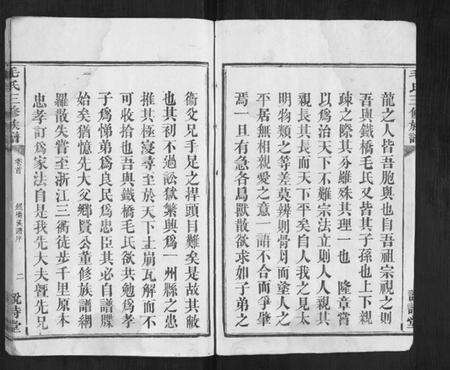 龍之人皆吾胞與也自吾祖宗視之則
吾與鐵橋毛氏又皆其子孫也上下親
疎之際其分雖殊其理一也 隆章嘗
以為治天下不難宗法立則人人親其
親長其長而天下平矣自人我之見太
明物類之等差莫辨則骨肉而塗人之
平居無相親愛之意一語不合而爭肇
焉一旦有急各鳥獸散欲求如子弟之
衞父兄手足之捍頭目難矣是故其敝
也其初不過訟獄繁興為一州縣之患
推其極寖尋至於天下土崩瓦解而不
可收拾也吾與鐵橋毛氏欲共勉為孝
子為悌弟為良民為忠臣其必自譜牒
始矣猶憶先大父鄉賢公董修族譜網
羅散失嘗至浙江三衢徒步千里原本
忠孝訂為家法自是我先大夫暨先兄
毛氏三修族譜
卷首
二
說詩堂